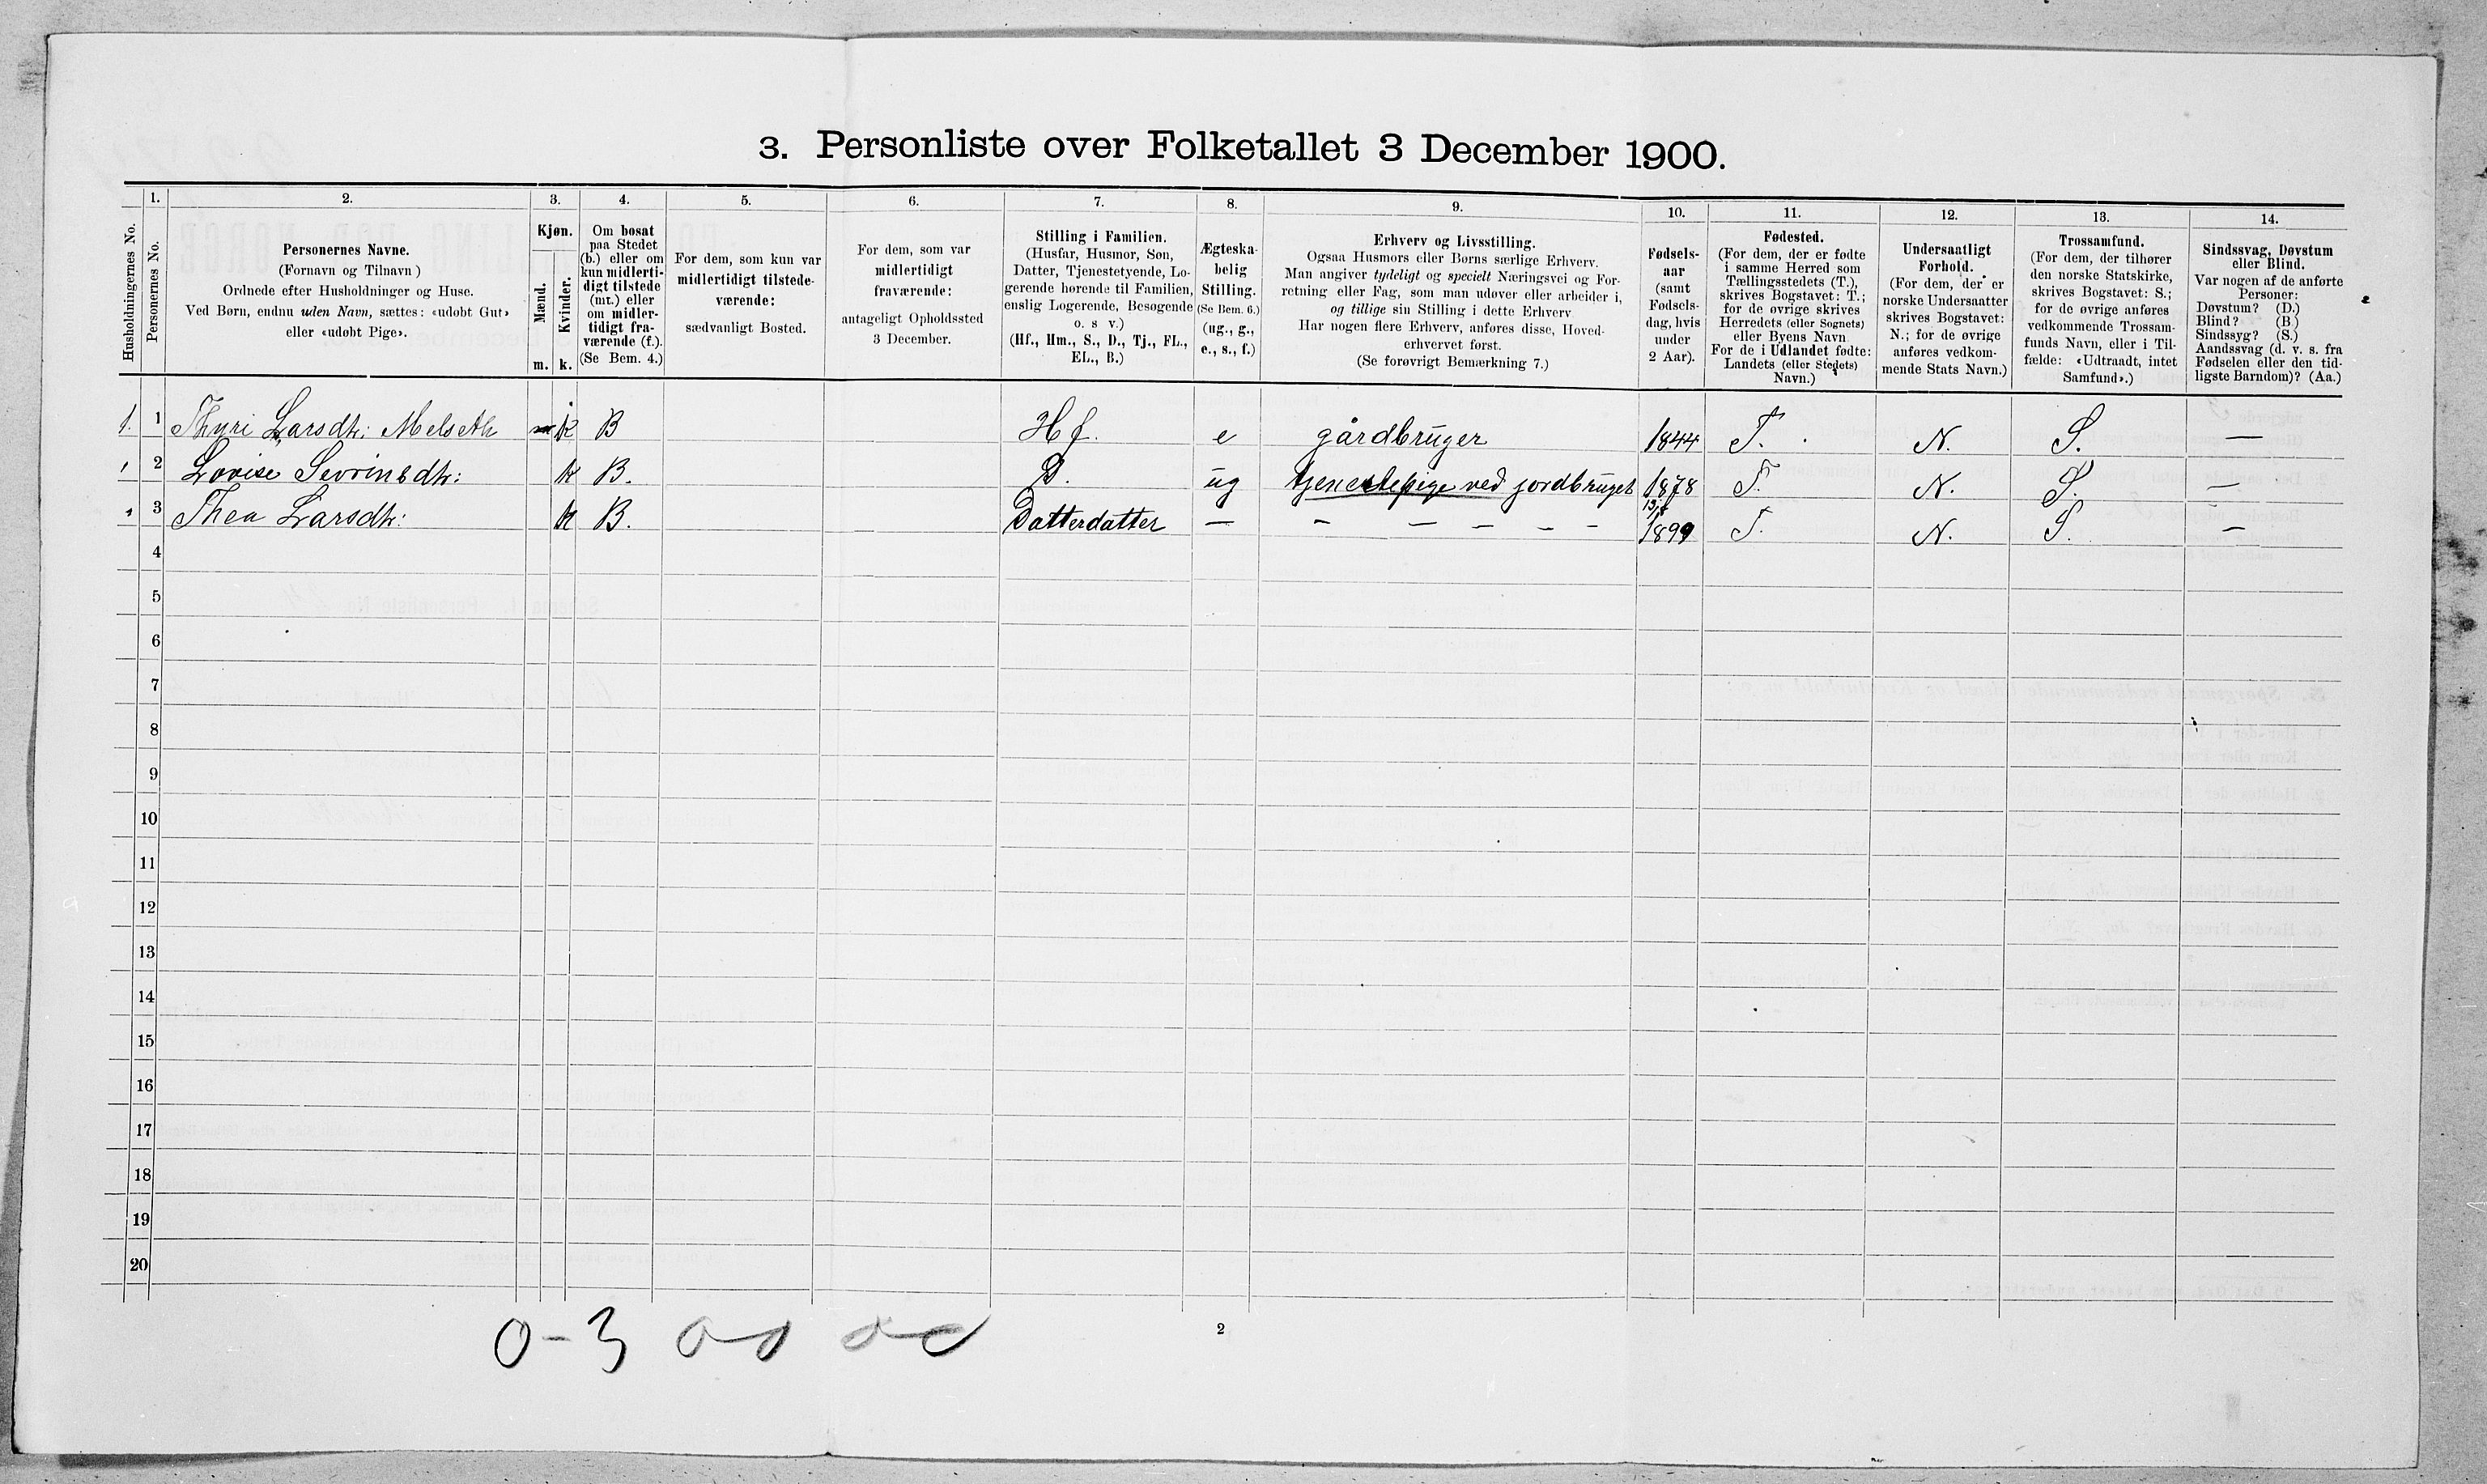 3. Personliste over Folketallet 3 December 1900.
Husholdningernes No.
1.
Personernes No.
2.
Personernes Navne.
(Fornavn og Tilnavn)
Ordnede efter Husholdninger og Huse.
Ved Børn, endnu uden Navn, sættes: «udøbt Gut»
eller «udøbt Pige».
3.
Kjøn.
Mænd.
Kvinder.
m. k.
4.
Om bosat
paa Stedet
(b.) eller om
kun midlerti-
digt tilstede
(mt.) eller
om midler-
tidigt fra-
værende (f.).
(Se Bem. 4.)
5.
For dem, som kun var
midlertidigt tilstede-
værende:
sædvanligt Bosted.
6.
For dem, som var
midlertidigt
fraværende:
antageligt Opholdssted
3 December.
7.
Stilling i Familien.
(Husfar, Husmor, Søn,
Datter, Tjenestetyende, Lo-
gerende hørende til Familien,
enslig Logerende, Besøgende
o. s v.)
(Hf., Hm., S., D., Tj., FL.,
EL., B.)
8.
Ægteska-
belig
Stilling.
(Se Bem. 6.)
(ug., g.,
e., s., f.)
9.
Erhverv og Livsstilling.
Ogsaa Husmors eller Børns særlige Erhverv.
Man angiver tydeligt og specielt Næringsvei og For-
retning eller Fag, som man udøver eller arbeider i,
og tillige sin Stilling i dette Erhverv
Har nogen flere Erhverv, anføres disse, Hoved-
erhvervet først.
(Se forøvrigt Bemærkning 7.)
10.
Fødsels-
aar
(samt
Fødsels-
dag, hvis
under
2 Aar).
11.
Fødested.
(For dem, der er fødte
i samme Herred som
Tællingsstedets (T.),
skrives Bogstavet: T.;
for de øvrige skrives
Herredets (eller Sognets)
eller Byens Navn
For de i Udlandet fødte:
Landets (eller Stedets)
Navn.)
12.
Undersaatligt
Forhold.
(For dem, der er
norske Undersaatter
skrives Bogstavet:
N.; for de øvrige
anføres vedkom-
mende Stats Navn.)
13.
Trossamfund.
(For dem, der tilhører
den norske Statskirke,
skrives Bogstavet: S.;
for de øvrige anføres
vedkommende Trossam-
funds Navn, eller i Til-
fælde: «Udtraadt, intet
Samfund».)
14.
Sindssvag, Døvstum
eller Blind.
Var nogen af de anførte
Personer:
Døvstum? (D.)
Blind? (B)
Sindssyg? (S.)
Aandssvag (d. v. s. fra
Fødselen eller den tid-
ligste Barndom)? (Aa.)
1. 1 Thyri Larsdtr: Melseth k B Hf. e gårdbruger 1844 T. N. S. —
2 Lovise Sevrinsdtr: k B. D. ug tjenestepige ved jordbruget 1878 T. N. S. —
3 Thea Larsdtr: k B. Datterdatter — — — — — — 1899 T. N. S. —
4
5
6
7
8
9
10
11
12
13
14
15
16
17
18
19
20
0-3
2